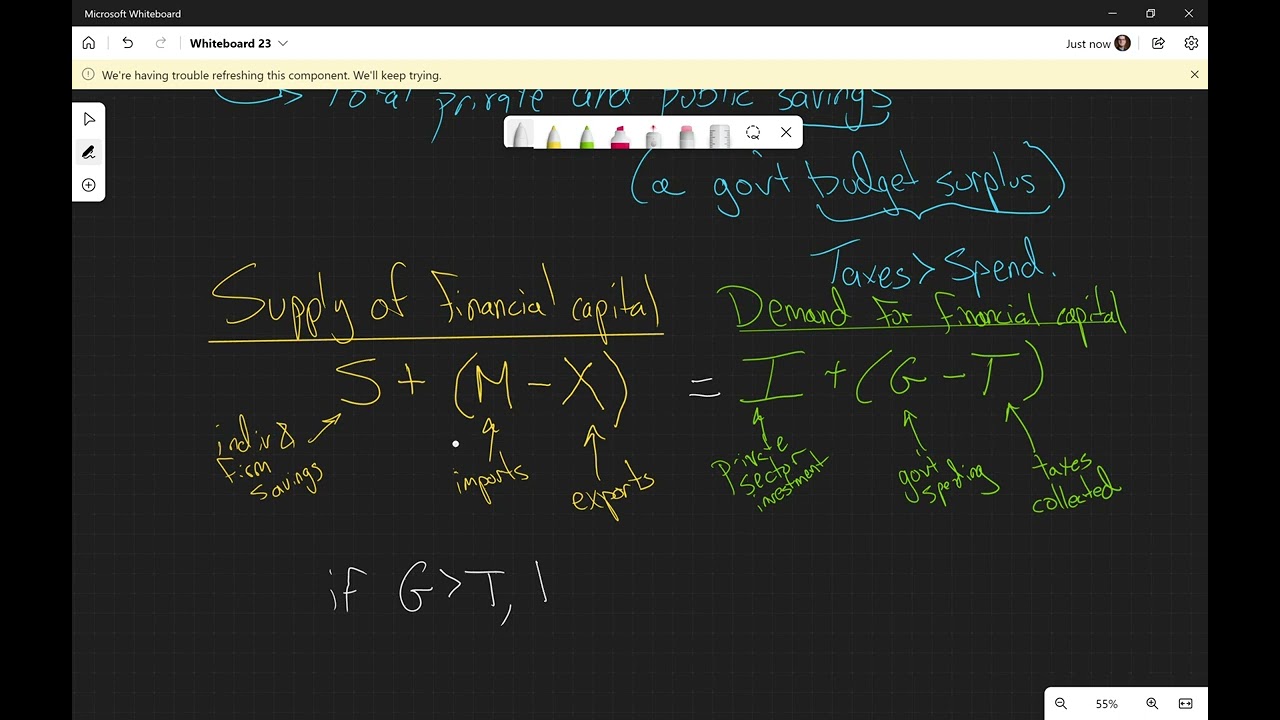 Microsoft Whiteboard
Whiteboard 23
Just now
We're having trouble refreshing this component. We'll keep trying.
Total private and public savings
(a gov't budget surplus)
Taxes > Spend.
Supply of Financial capital
Demand For financial capital
S + (M - X) = I + (G - T)
indiv &
firm
savings
imports
exports
private
sector
investment
gov't
spending
taxes
collected
if G > T, I
55%